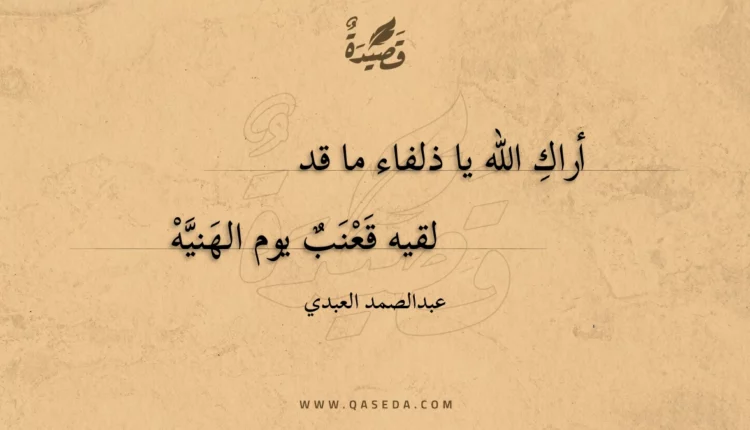 قَصِيْدَةٌ
أراكِ الله يا ذلفاء ما قد
لقيه قَعْنَبٌ يوم الهَنيَّهْ
عبدالصمد العبدي
WWW.QASEDA.COM